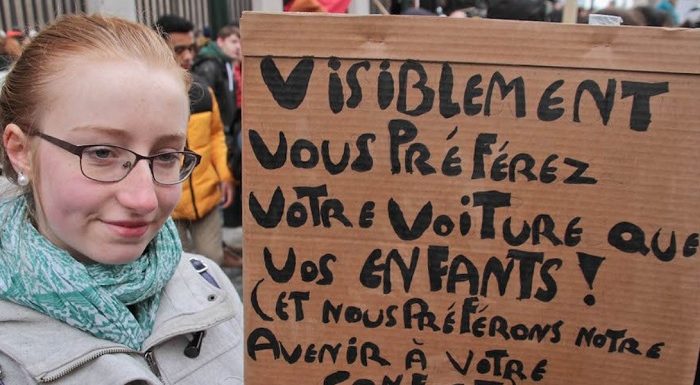 VISIBLEMENT
VOUS PRÉFÉREZ
VOTRE VOITURE QUE
VOS ENFANTS !
(ET NOUS PRÉFÉRONS NOTRE
AVENIR À VOTRE